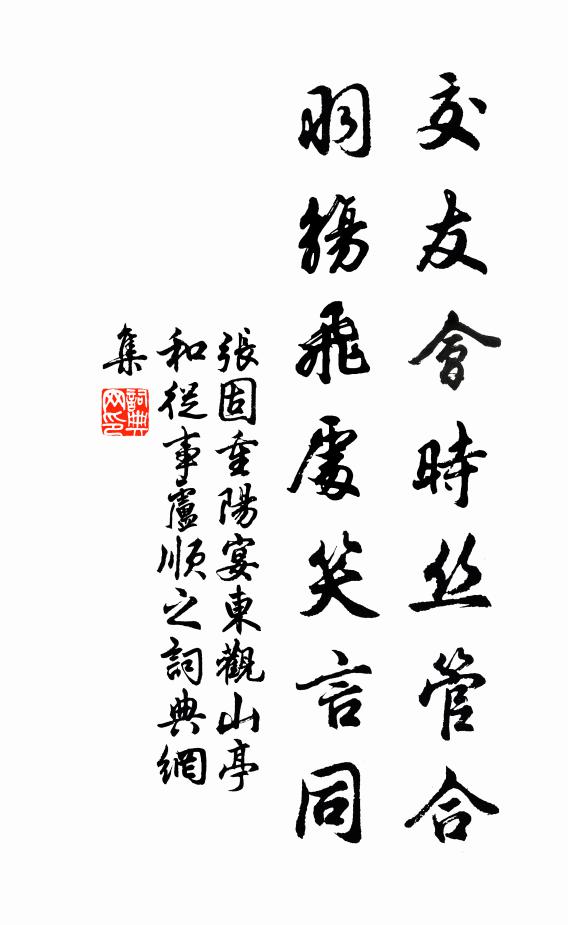 交友會時丝管合
羽觴飛處笑言同
張固重陽宴東觀山亭
和從事盧順之詞典網
集
詞典
网印